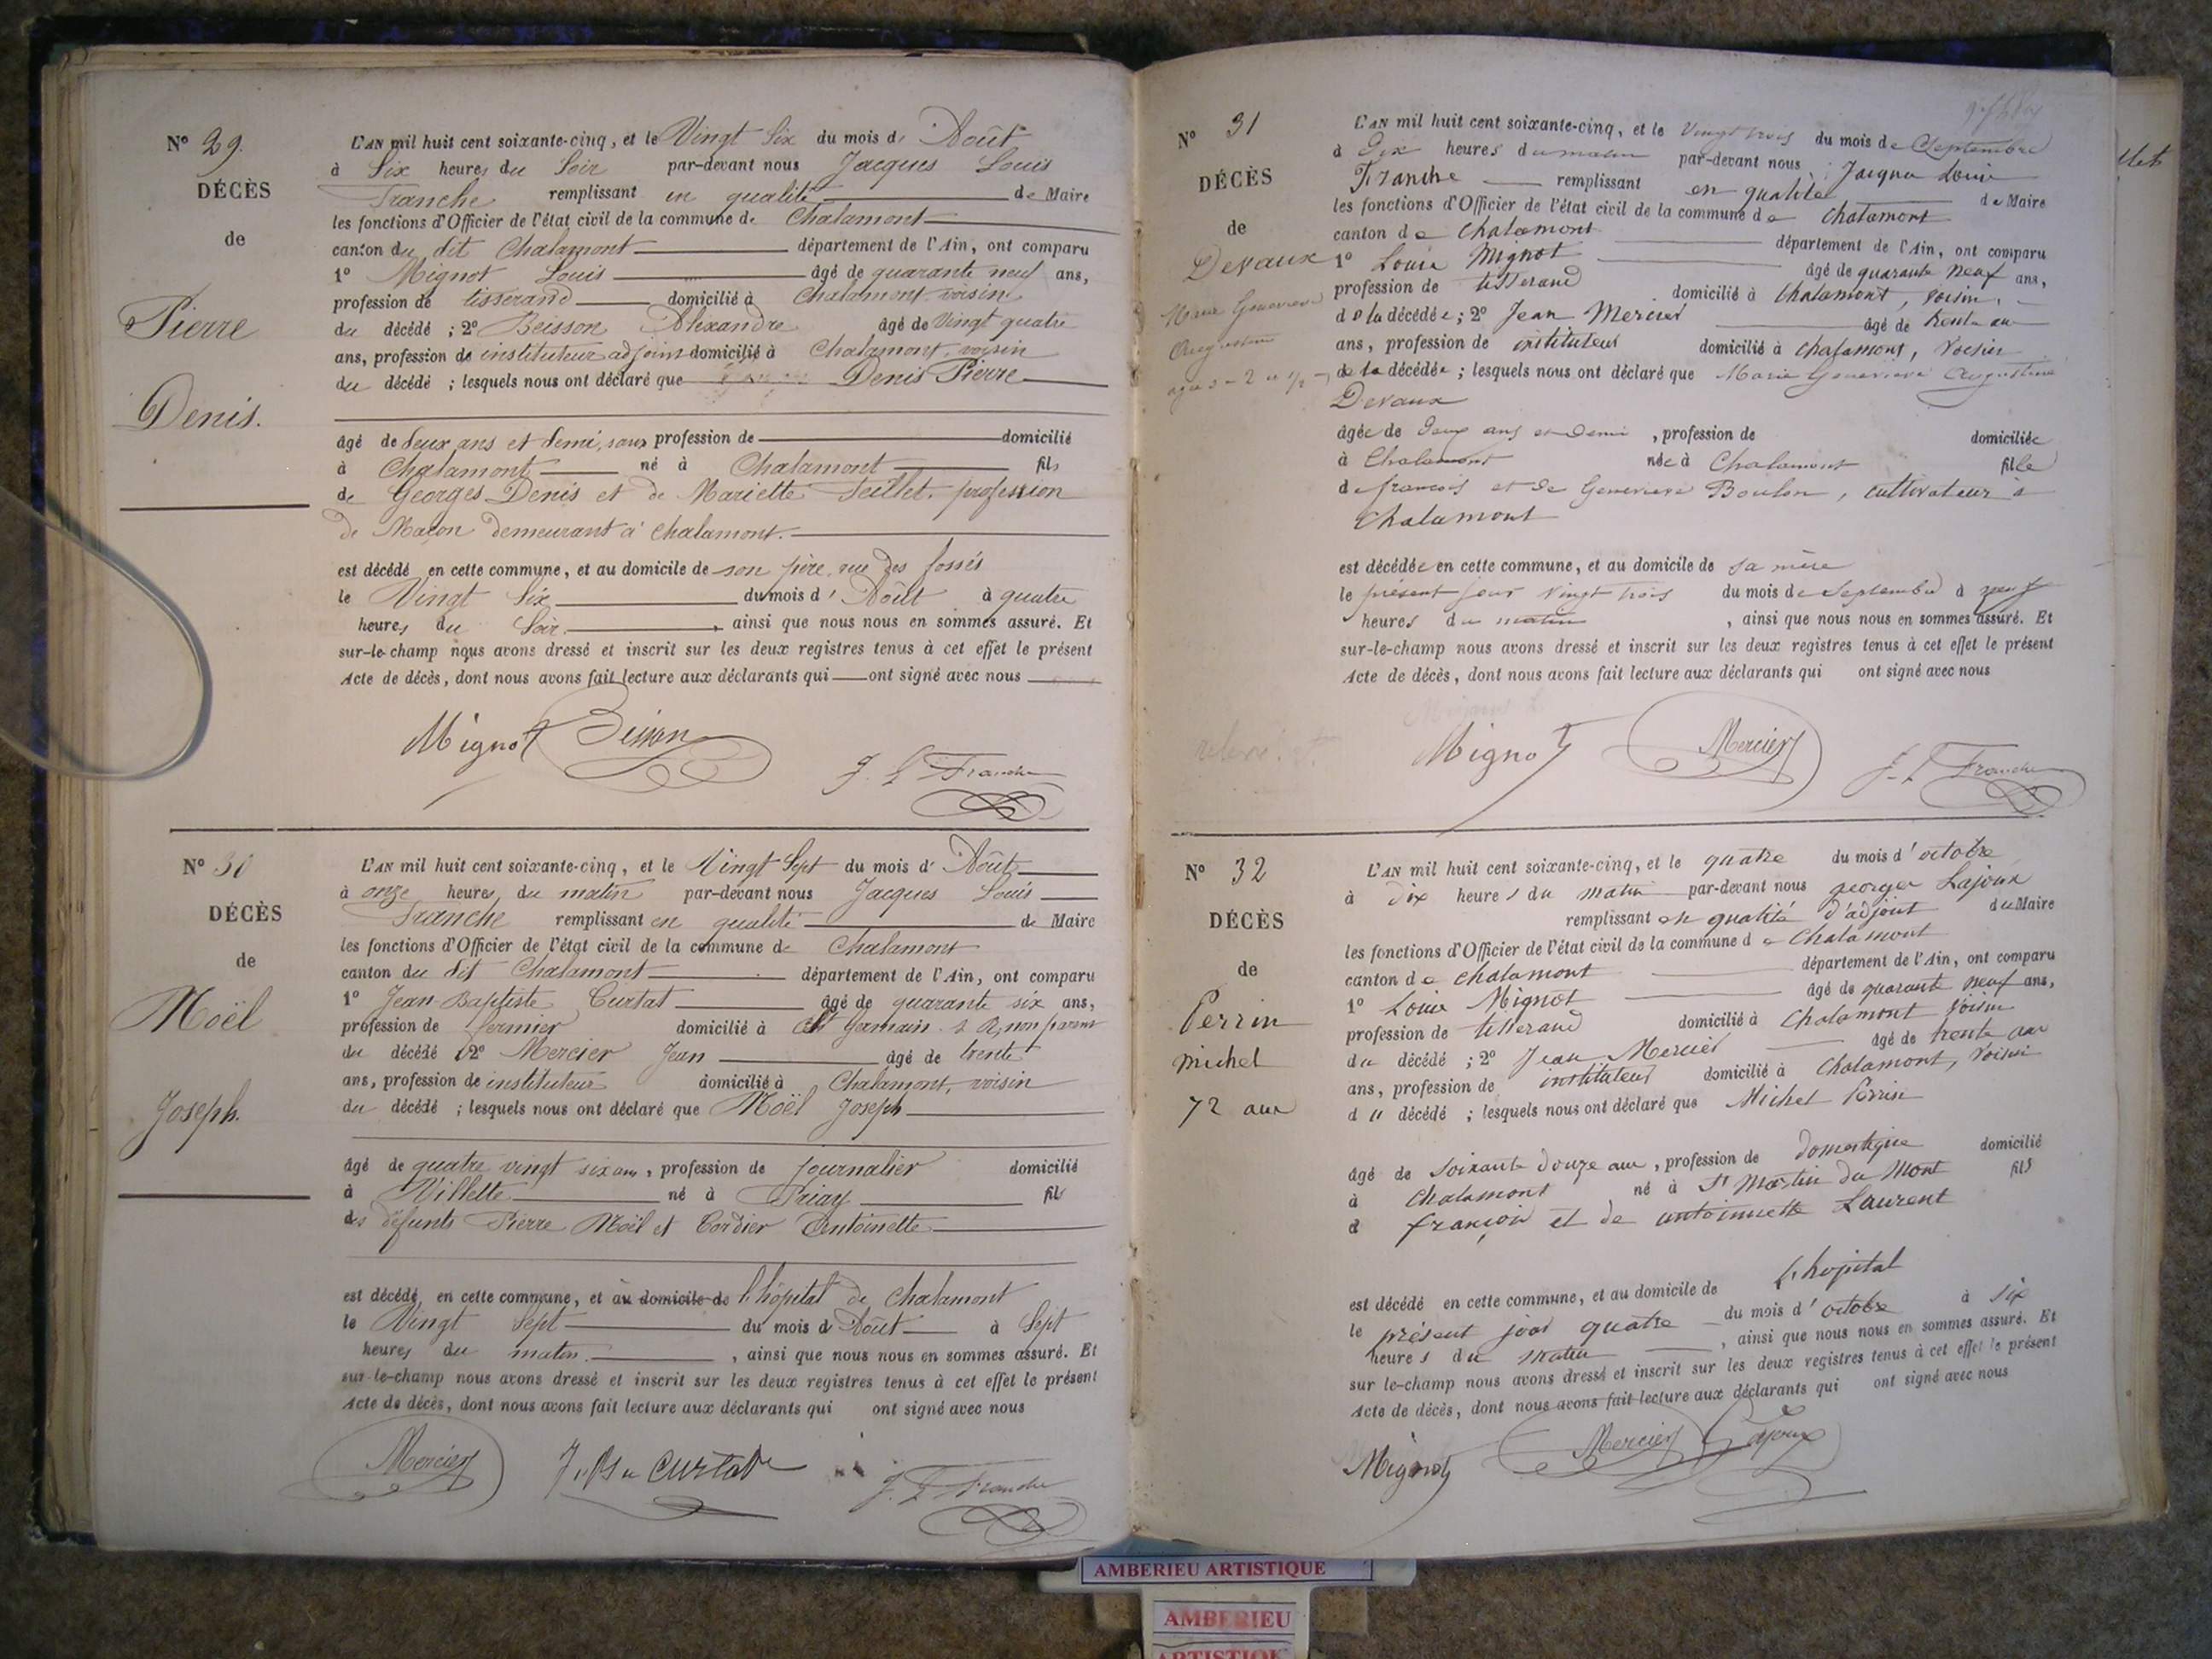 N° 29.
DÉCÈS
de
Pierre
Denis.
L'AN mil huit cent soixante-cinq, et le Vingt Six du mois d' Août
à Six heures du Soir par-devant nous Jacques Louis
Franche remplissant en qualité de Maire
les fonctions d'Officier de l'état civil de la commune de Chalamont
canton du dit Chalamont département de l'Ain, ont comparu
1° Mignot Louis âgé de quarante neuf ans,
profession de tisserand domicilié à Chalamont, voisin
du décédé ; 2° Beisson Alexandre âgé de Vingt quatre
ans, profession de instituteur adjoint domicilié à Chalamont, voisin
du décédé ; lesquels nous ont déclaré que Denis Pierre
âgé de deux ans et demi, sans profession de domicilié
à Chalamont né à Chalamont fils
de Georges Denis et de Mariette profession
de Maçon demeurant à Chalamont.
est décédé en cette commune, et au domicile de son père, rue des fossés
le Vingt Six du mois d' Août à quatre
heures du Soir, ainsi que nous nous en sommes assuré. Et
sur-le-champ nous avons dressé et inscrit sur les deux registres tenus à cet effet le présent
Acte de décès, dont nous avons fait lecture aux déclarants qui ont signé avec nous
Mignot Beisson
J. L. Franche
N° 30
DÉCÈS
de
Noël
Joseph.
L'AN mil huit cent soixante-cinq, et le Vingt Sept du mois d' Août
à onze heures du matin par-devant nous Jacques Louis
Franche remplissant en qualité de Maire
les fonctions d'Officier de l'état civil de la commune de Chalamont
canton du dit Chalamont département de l'Ain, ont comparu
1° Jean-Baptiste Curtat âgé de quarante six ans,
profession de fermier domicilié à St Germain non parent
du décédé 2° Mercier Jean âgé de trente
ans, profession de instituteur domicilié à Chalamont, voisin
du décédé ; lesquels nous ont déclaré que Noël Joseph
âgé de quatre vingt six ans, profession de journalier domicilié
à Villette né à Priay fils
des défunts Pierre Noël et Cordier Antoinette
est décédé en cette commune, et au domicile de l'hôpital de Chalamont
le Vingt Sept du mois d' Août à Sept
heures du matin, ainsi que nous nous en sommes assuré. Et
sur-le-champ nous avons dressé et inscrit sur les deux registres tenus à cet effet le présent
Acte de décès, dont nous avons fait lecture aux déclarants qui ont signé avec nous
Mercier J. Bte Curtat J. L. Franche
N° 31
DÉCÈS
de
Devaux
Marie Genevieve
Augustine
L'AN mil huit cent soixante-cinq, et le Vingt trois du mois de Septembre
à Dix heures du matin par-devant nous Jacques Louis
Franche remplissant en qualité de Maire
les fonctions d'Officier de l'état civil de la commune de Chalamont
canton de Chalamont département de l'Ain, ont comparu
1° Louis Mignot âgé de quarante neuf ans,
profession de tisserand domicilié à Chalamont, voisin,
de la décédée ; 2° Jean Mercier âgé de trente un
ans, profession de instituteur domicilié à Chalamont, voisin
de la décédée ; lesquels nous ont déclaré que Marie Genevieve Augustine
Devaux
âgée de deux ans et demi, profession de domiciliée
à Chalamont née à Chalamont fille
de françois et de Genevieve Boulon, cultivateur à
Chalamont
est décédée en cette commune, et au domicile de sa mère
le présent jour vingt trois du mois de Septembre à neuf
heures du matin, ainsi que nous nous en sommes assuré. Et
sur-le-champ nous avons dressé et inscrit sur les deux registres tenus à cet effet le présent
Acte de décès, dont nous avons fait lecture aux déclarants qui ont signé avec nous
Mignot Mercier J. L. Franche
N° 32
DÉCÈS
de
Perrin
michel
72 ans
L'AN mil huit cent soixante-cinq, et le quatre du mois d' octobre
à dix heures du matin par-devant nous georges Lajoux
remplissant en qualité d'adjoint du Maire
les fonctions d'Officier de l'état civil de la commune de Chalamont
canton de chalamont département de l'Ain, ont comparu
1° Louis Mignot âgé de quarante neuf ans,
profession de tisserand domicilié à Chalamont voisin
du décédé ; 2° Jean Mercier âgé de trente un
ans, profession de instituteur domicilié à Chalamont, voisin
du décédé ; lesquels nous ont déclaré que Michel Perrin
âgé de soixante douze ans, profession de domestique domicilié
à Chalamont né à St Martin du Mont fils
d françois et de antoinette Laurent
est décédé en cette commune, et au domicile de l'hopital
le présent jour quatre du mois d' octobre à six
heures du matin, ainsi que nous nous en sommes assuré. Et
sur le-champ nous avons dressé et inscrit sur les deux registres tenus à cet effet le présent
Acte de décès, dont nous avons fait lecture aux déclarants qui ont signé avec nous
Mignot Mercier Lajoux
AMBERIEU ARTISTIQUE
AMBERIEU
ARTISTIQUE